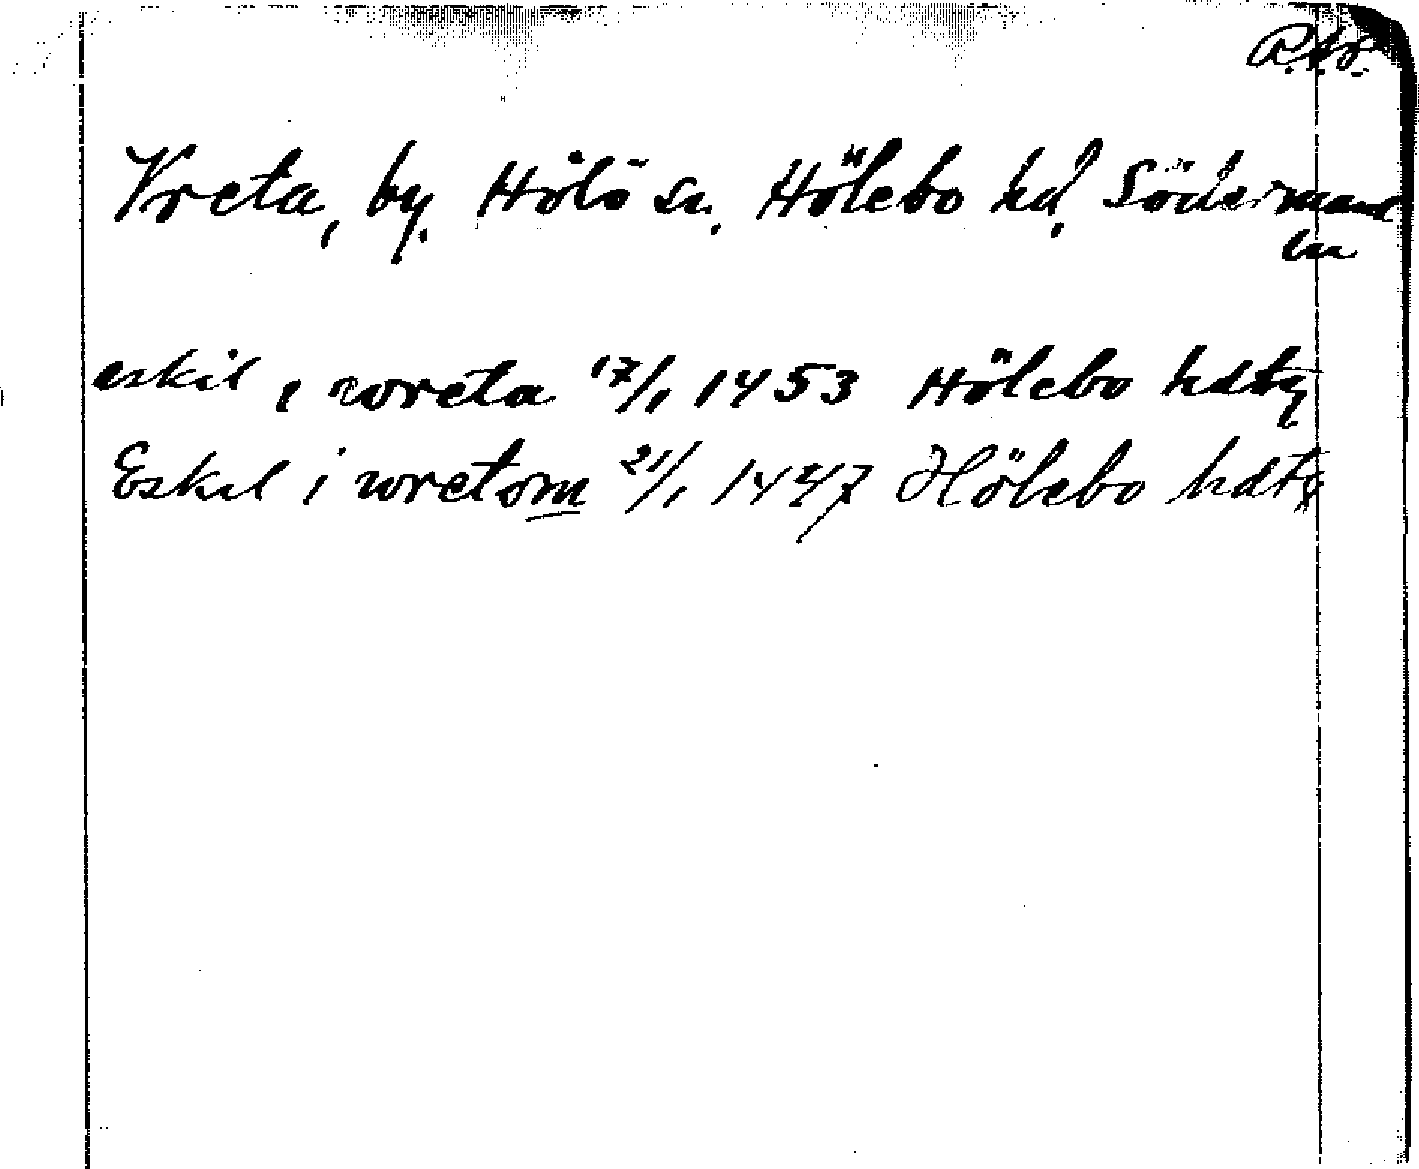 Vreta, by. Hölö sn. Hölebo hd. Södermanl
ln
eskil i wreta 17/1 1453 Hölebo hdtg
Eskil i wretom 21/1 1447 Hölebo hdtg